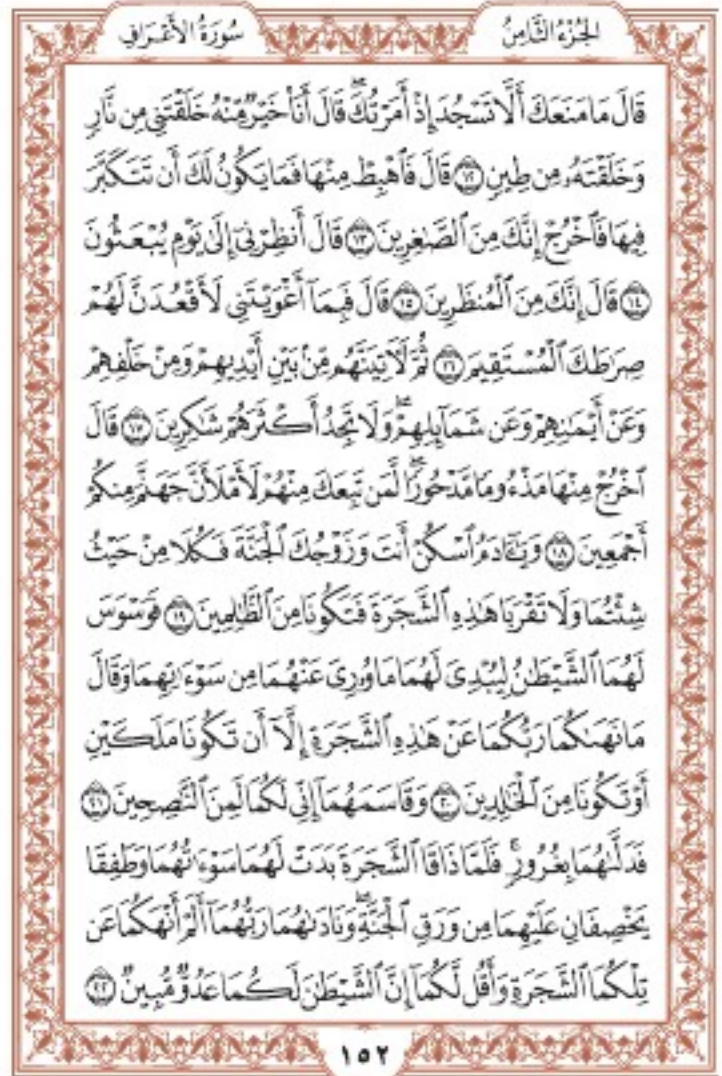 سُورَةُ الأَعْرَافِ
الجُزْءُ الثَّامِنُ
قَالَ مَا مَنَعَكَ أَلَّا تَسْجُدَ إِذْ أَمَرْتُكَ ۖ قَالَ أَنَا۠ خَيْرٌ مِّنْهُ خَلَقْتَنِي مِن نَّارٍ
وَخَلَقْتَهُۥ مِن طِينٍ ۝١٢ قَالَ فَٱهْبِطْ مِنْهَا فَمَا يَكُونُ لَكَ أَن تَتَكَبَّرَ
فِيهَا فَٱخْرُجْ إِنَّكَ مِنَ ٱلصَّٰغِرِينَ ۝١٣ قَالَ أَنظِرْنِىٓ إِلَىٰ يَوْمِ يُبْعَثُونَ
۝١٤ قَالَ إِنَّكَ مِنَ ٱلْمُنظَرِينَ ۝١٥ قَالَ فَبِمَآ أَغْوَيْتَنِى لَأَقْعُدَنَّ لَهُمْ
صِرَٰطَكَ ٱلْمُسْتَقِيمَ ۝١٦ ثُمَّ لَءَاتِيَنَّهُم مِّنۢ بَيْنِ أَيْدِيهِمْ وَمِنْ خَلْفِهِمْ
وَعَنْ أَيْمَٰنِهِمْ وَعَن شَمَآئِلِهِمْ ۖ وَلَا تَجِدُ أَكْثَرَهُمْ شَٰكِرِينَ ۝١٧ قَالَ
ٱخْرُجْ مِنْهَا مَذْءُومًا مَّدْحُورًا ۖ لَّمَن تَبِعَكَ مِنْهُمْ لَأَمْلَأَنَّ جَهَنَّمَ مِنكُمْ
أَجْمَعِينَ ۝١٨ وَيَٰٓـَٔادَمُ ٱسْكُنْ أَنتَ وَزَوْجُكَ ٱلْجَنَّةَ فَكُلَا مِنْ حَيْثُ
شِئْتُمَا وَلَا تَقْرَبَا هَٰذِهِ ٱلشَّجَرَةَ فَتَكُونَا مِنَ ٱلظَّٰلِمِينَ ۝١٩ فَوَسْوَسَ
لَهُمَا ٱلشَّيْطَٰنُ لِيُبْدِىَ لَهُمَا مَا وُۥرِىَ عَنْهُمَا مِن سَوْءَٰتِهِمَا وَقَالَ
مَا نَهَىٰكُمَا رَبُّكُمَا عَنْ هَٰذِهِ ٱلشَّجَرَةِ إِلَّآ أَن تَكُونَا مَلَكَيْنِ
أَوْ تَكُونَا مِنَ ٱلْخَٰلِدِينَ ۝٢٠ وَقَاسَمَهُمَآ إِنِّى لَكُمَا لَمِنَ ٱلنَّٰصِحِينَ ۝٢١
فَدَلَّىٰهُمَا بِغُرُورٍ ۚ فَلَمَّا ذَاقَا ٱلشَّجَرَةَ بَدَتْ لَهُمَا سَوْءَٰتُهُمَا وَطَفِقَا
يَخْصِفَانِ عَلَيْهِمَا مِن وَرَقِ ٱلْجَنَّةِ ۖ وَنَادَىٰهُمَا رَبُّهُمَآ أَلَمْ أَنْهَكُمَا عَن
تِلْكُمَا ٱلشَّجَرَةِ وَأَقُل لَّكُمَآ إِنَّ ٱلشَّيْطَٰنَ لَكُمَا عَدُوٌّ مُّبِينٌ ۝٢٢
١٥٢